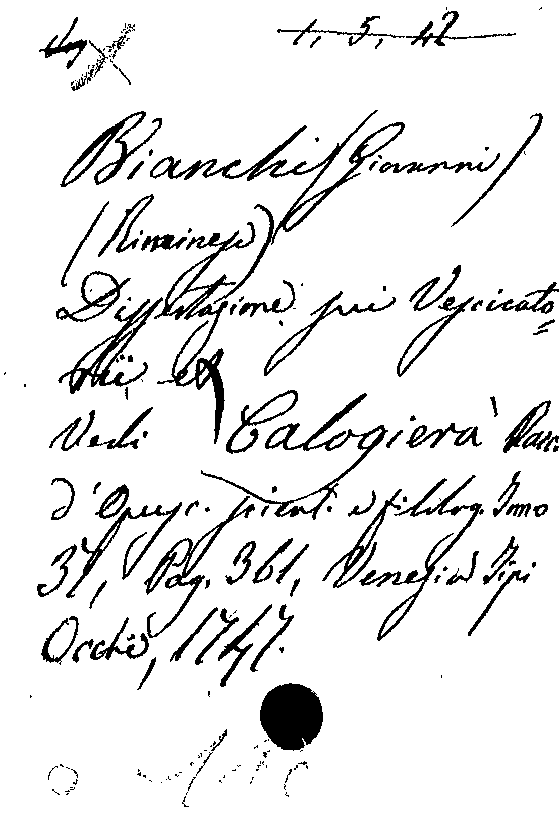 1, 5, 42
Bianchi (Giovanni)
(Riminese)
Dissertazione sui Vescicato=
rii
Vedi Calogierà Racc.
d'Opusc. scient. e filolog. Tomo
37, Pag. 361, Venezia Tipi
Occhi, 1747.